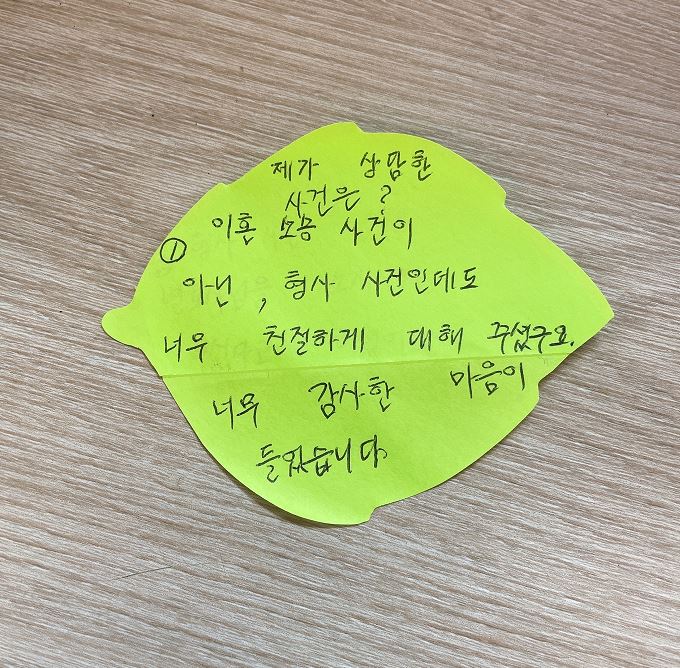 제가 상담한
사건은?
① 이혼 소송 사건이
아닌, 형사 사건인데도
너무 친절하게 대해 주셨구요.
너무 감사한 마음이
들었습니다.